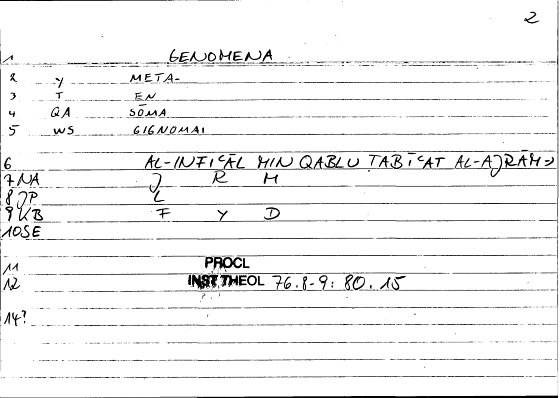 2
1 GENOMENA
2 Y META-
3 T EN
4 QA SŌMA
5 WS GIGNOMAI
6 AL-INFICĀL MIN QABLU TABĪCAT AL-AJRĀM
7 NA J R M
8 JP L
9 KB F Y D
10 SE
11 PROCL
12 INST THEOL 76.8-9: 80.15
14?